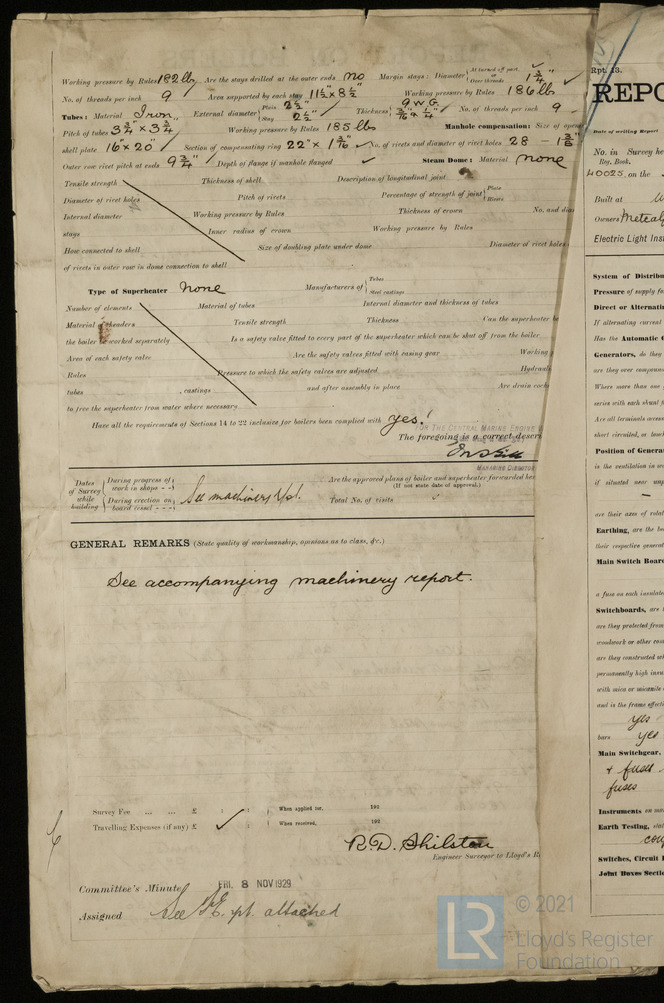 Working pressure by Rules 182 lb Are the stays drilled at the outer ends no Margin stays: Diameter { At turned off part, or Over threads 1 3/4"
No. of threads per inch 9 Area supported by each stay 11½" x 8½" Working pressure by Rules 186 lb
Tubes: Material Iron External diameter { Plain Stay 2½" Thickness { 9 W.G. 5/16" ¼" No. of threads per inch 9
Pitch of tubes 3¾" x 3¾" Working pressure by Rules 185 lbs Manhole compensation: Size of
shell plate 16" x 20" Section of compensating ring 22" x 1 No. of rivets and diameter of rivet holes 28 - 1
Outer row rivet pitch at ends 9¾" Depth of flange if manhole flanged ✓ Steam Dome: Material none
Tensile strength Thickness of shell Description of longitudinal joint
Diameter of rivet holes Pitch of rivets Percentage of strength of joint { Plate Rivets
Internal diameter Working pressure by Rules Thickness of crown No. and
stays Inner radius of crown Working pressure by Rules
How connected to shell Size of doubling plate under dome Diameter of rivet holes
of rivets in outer row in dome connection to shell
Type of Superheater none Manufacturers of { Tubes Steel castings
Number of elements Material of tubes Internal diameter and thickness of tubes
Material of headers Tensile strength Thickness Can the superheater
the boiler be worked separately Is a safety valve fitted to every part of the superheater which can be shut off from the boiler
Area of each safety valve Are the safety valves fitted with easing gear Working
Rules Pressure to which the safety valves are adjusted Hydraulic
tubes , castings and after assembly in place Are drain
to free the superheater from water where necessary
Have all the requirements of Sections 14 to 22 inclusive for boilers been complied with yes!
FOR THE CENTRAL MARINE ENGINE
The foregoing is a correct
MANAGING DIRECTOR
Dates of Survey while building { During progress of work in shops - - } { During erection on board vessel - - - } See machinery rpt. Are the approved plans of boiler and superheater forwarded
(If not state date of approval.)
Total No. of visits
GENERAL REMARKS (State quality of workmanship, opinions as to class, &c.)
See accompanying machinery report.
Survey Fee ... ... £ : : { When applied for, 192
Travelling Expenses (if any) £ : : { When received, 192
R.D. Shilston
Engineer Surveyor to Lloyd's
Committee's Minute FRI. 8 NOV 1929
Assigned See F.E. rpt. attached
Rpt. 13.
REPO
Date of writing Report
No. in Survey
Reg. Book.
40025. on the
Built at
Owners Metcalf
Electric Light
System of
Pressure of supply
Direct or
If alternating
Has the Automatic
Generators, do they
are they over
Where more than one
series with each shunt
Are all terminals
short circuited,
Position of
is the ventilation in
if situated near
are their axes of
Earthing, are the
their respective
Main Switch
a fuse on each
Switchboards, are
are they protected from
woodwork or other
are they constructed
permanently high
with mica or
and is the frame
yes
bars yes
Main Switchgear,
+ fuses
fuses
Instruments on
Earth Testing,
Switches, Circuit
Joint Boxes
LR © 2021
Lloyd's Register
Foundation